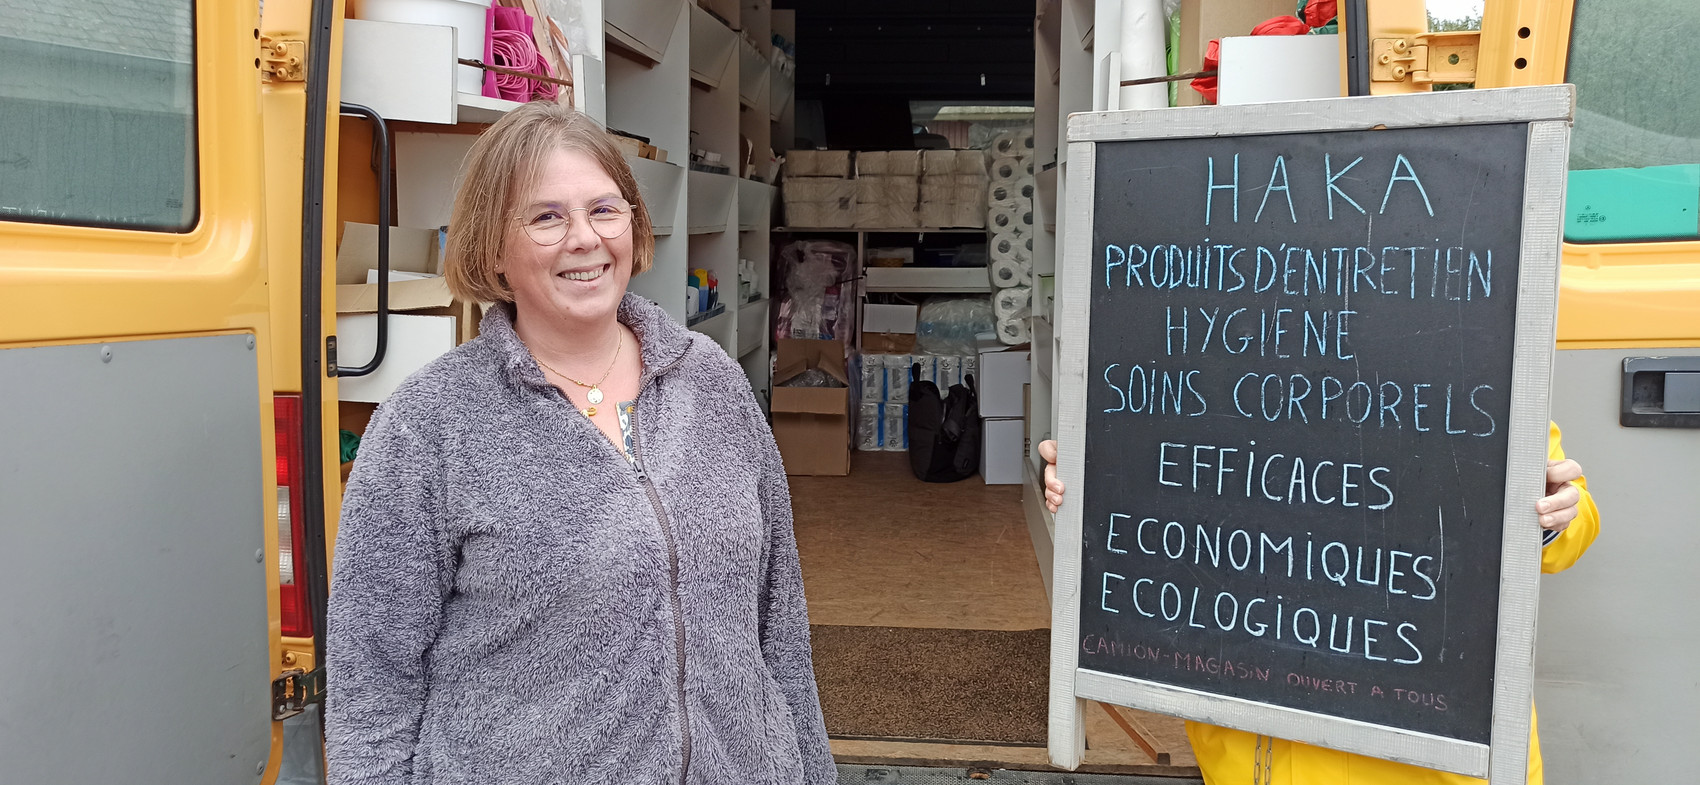 HAKA
PRODUITS D'ENTRETIEN
HYGIENE
SOINS CORPORELS
EFFICACES
ECONOMIQUES
ECOLOGIQUES
CAMION-MAGASIN OUVERT A TOUS